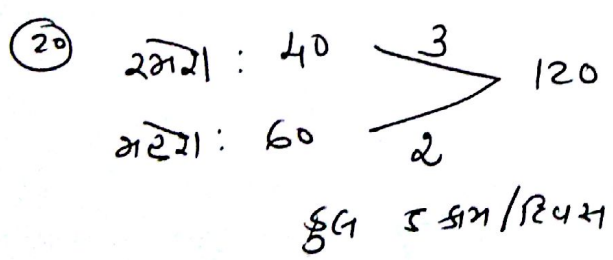 20 રમેશ : 40 3 120
મહેશ : 60 2
કુલ 5 કામ / દિવસ